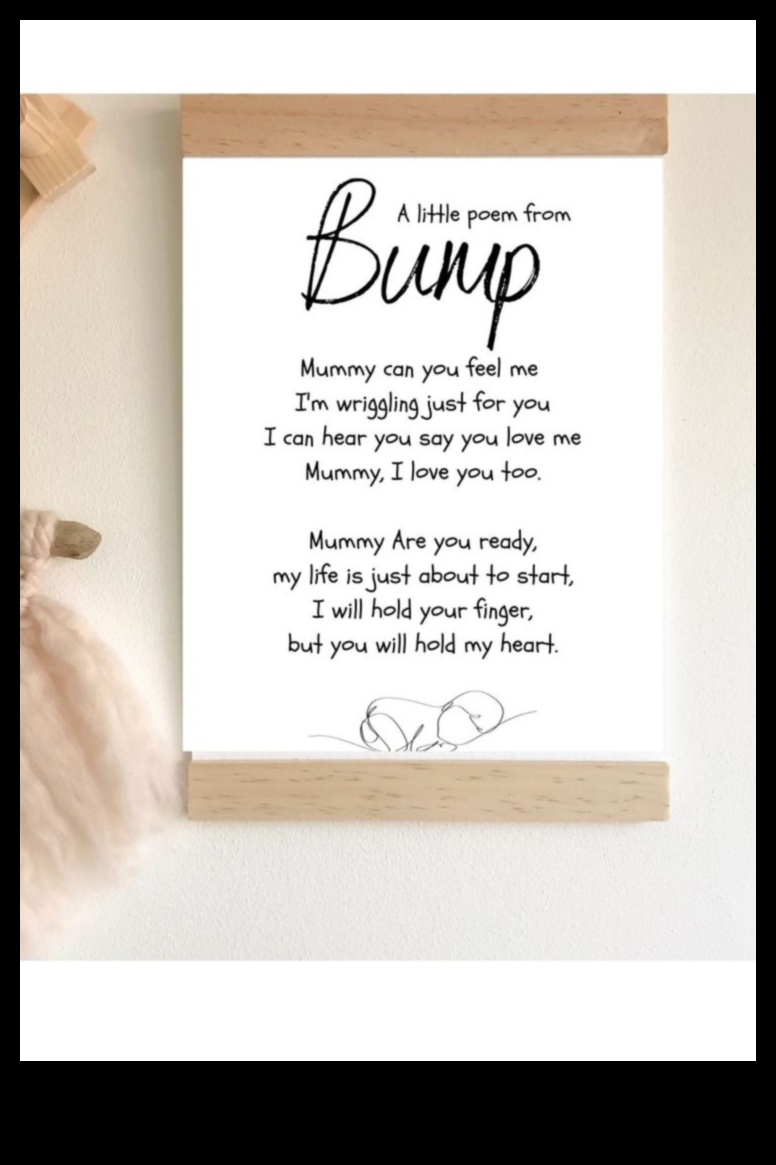 A little poem from
Bump
Mummy can you feel me
I'm wriggling just for you
I can hear you say you love me
Mummy, I love you too.
Mummy Are you ready,
my life is just about to start,
I will hold your finger,
but you will hold my heart.